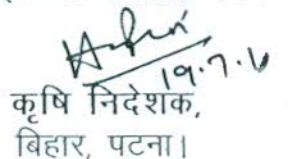 19.7.16
कृषि निदेशक,
बिहार, पटना।